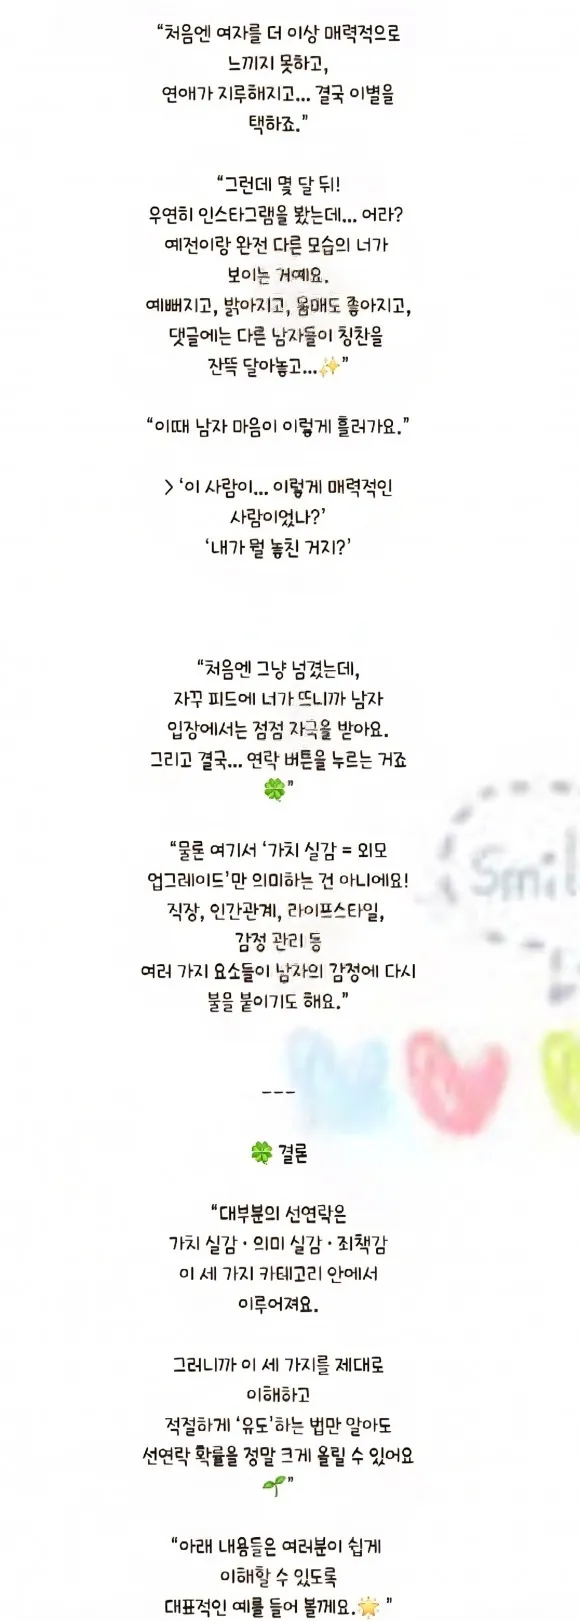 “처음엔 여자를 더 이상 매력적으로
느끼지 못하고,
연애가 지루해지고... 결국 이별을
택하죠.”
“그런데 몇 달 뒤!
우연히 인스타그램을 봤는데... 어라?
예전이랑 완전 다른 모습의 너가
보이는 거예요.
예뻐지고, 밝아지고, 몸매도 좋아지고,
댓글에는 다른 남자들이 칭찬을
잔뜩 달아놓고...✨”
“이때 남자 마음이 이렇게 흘러가요.”
> ‘이 사람이... 이렇게 매력적인
사람이었나?’
‘내가 뭘 놓친 거지?’
“처음엔 그냥 넘겼는데,
자꾸 피드에 너가 뜨니까 남자
입장에서는 점점 자극을 받아요.
그리고 결국... 연락 버튼을 누르는 거죠
🍀”
“물론 여기서 ‘가치 실감 = 외모
업그레이드’만 의미하는 건 아니에요!
직장, 인간관계, 라이프스타일,
감정 관리 등
여러 가지 요소들이 남자의 감정에 다시
불을 붙이기도 해요.”
Smil
---
🍀 결론
“대부분의 선연락은
가치 실감 · 의미 실감 · 죄책감
이 세 가지 카테고리 안에서
이루어져요.
그러니까 이 세 가지를 제대로
이해하고
적절하게 ‘유도’하는 법만 알아도
선연락 확률을 정말 크게 올릴 수 있어요
🌱”
“아래 내용들은 여러분이 쉽게
이해할 수 있도록
대표적인 예를 들어 볼게요.🌟 ”